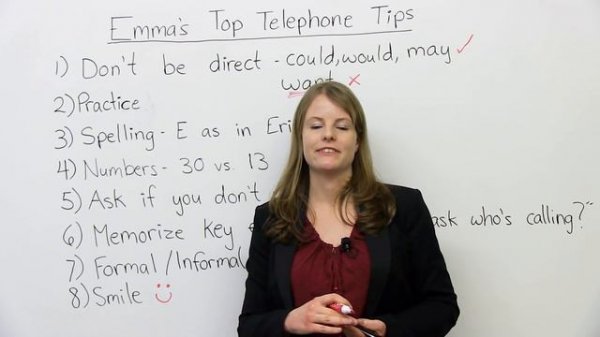 Emma's Top Telephone Tips
1) Don't be direct - could, would, may ✓
want ×
2) Practice
3) Spelling - E as in Eri
4) Numbers - 30 vs. 13
5) Ask if you don't
6) Memorize key ask who's calling?"
7) Formal / Informal
8) Smile ☺